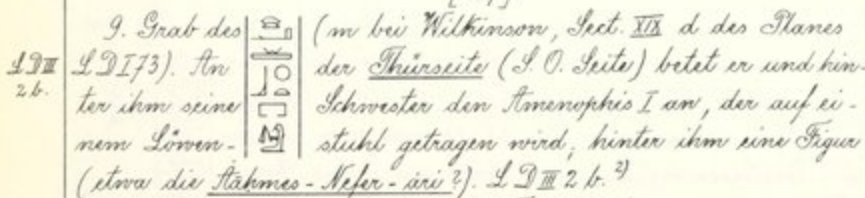 9. Grab des (m bei Wilkinson, Sect. XIX d des Planes
LDIII LDI73). An der Thürseite (S. O. Seite) betet er und hin-
2b. ter ihm seine Schwester den Amenophis I an, der auf ei-
nem Löwen- stuhl getragen wird; hinter ihm eine Figur
(etwa die Aāhmes-Nefer-āri?). LDIII 2 b. 2)